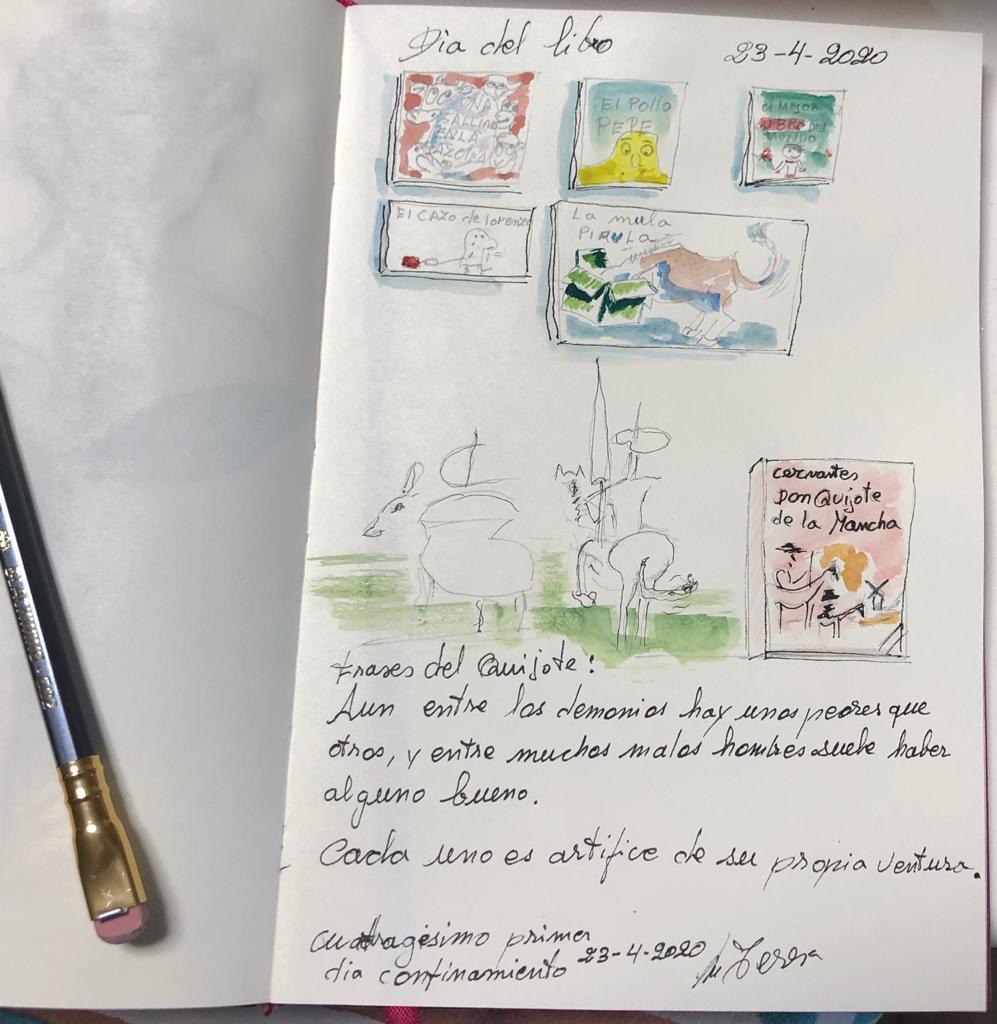 Dia del libro
23-4-2020
UNA
GALLINA
EN LA
El Pollo
PEPE
El MEJOR
LIBRO DEL
MUNDO
El CAZO de lorenzo
La mula
PIRULA
cervantes
Don Quijote
de la Mancha
Frases del Quijote:
Aun entre los demonios hay unos peores que
otros, y entre muchos malos hombres suele haber
alguno bueno.
Cada uno es artifice de su propia ventura.
cuadragésimo primer
dia confinamiento 23-4-2020